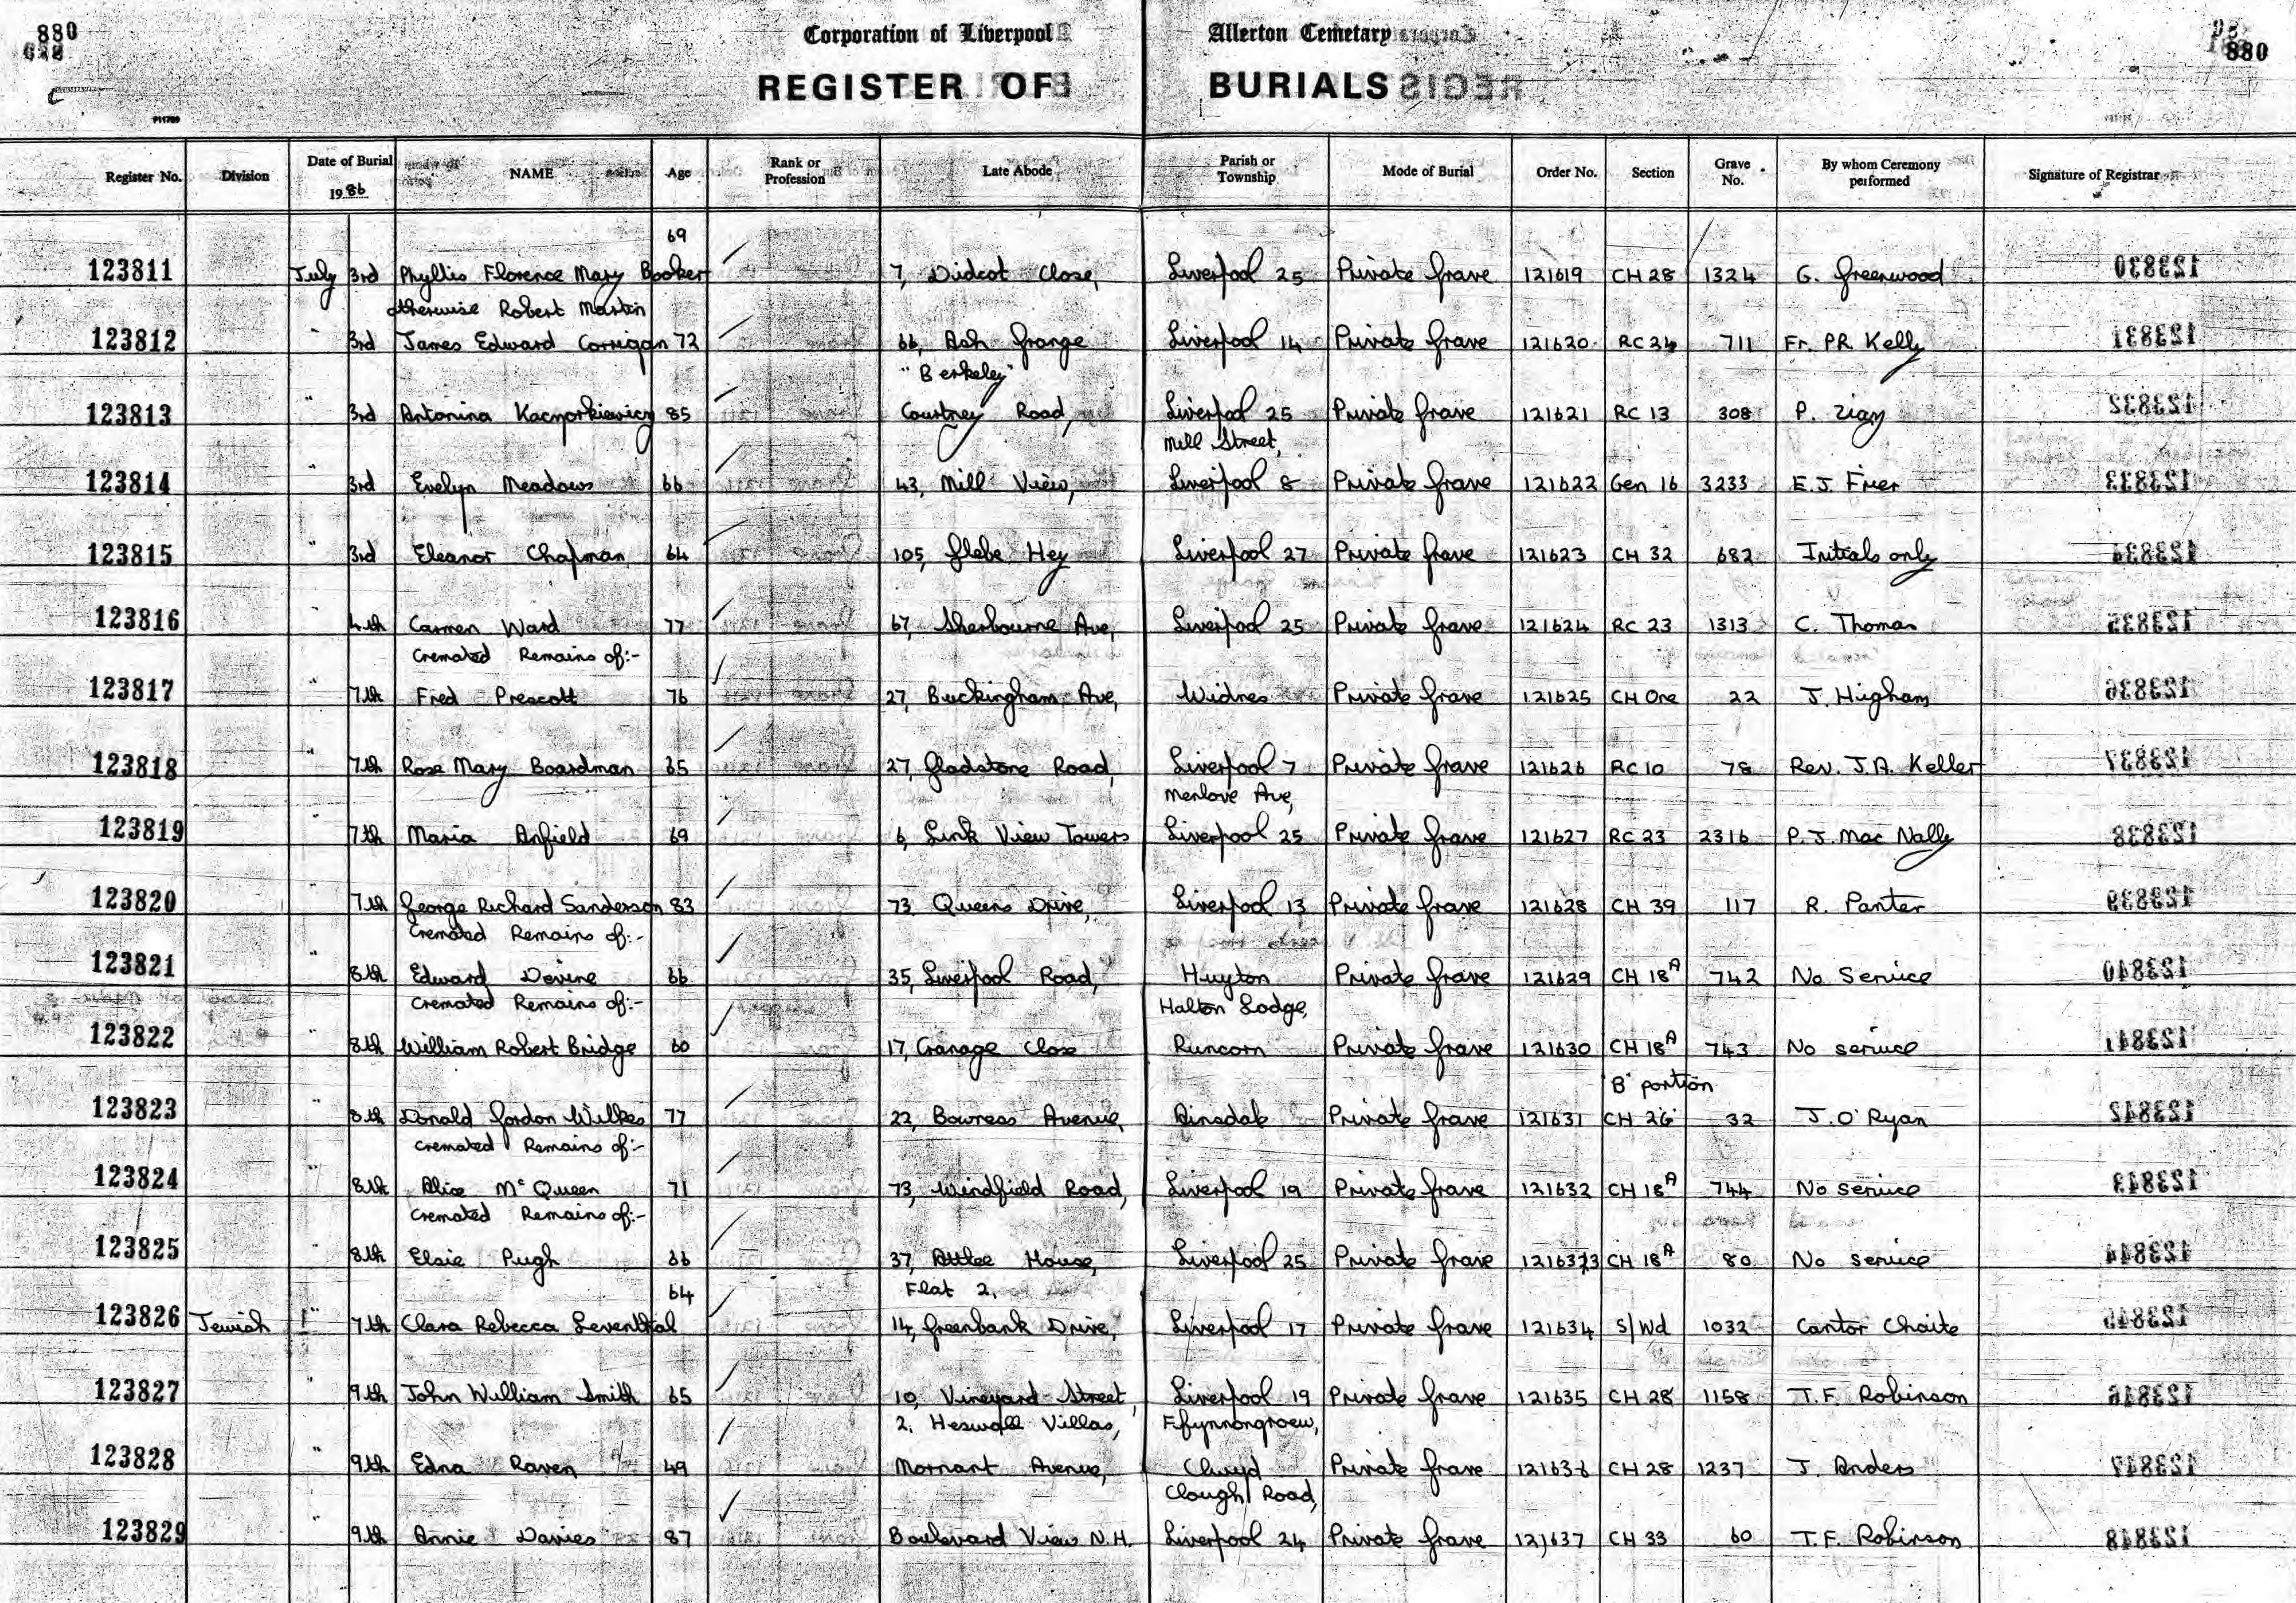 880 Corporation of Liverpool Allerton Cemetary 880
REGISTER OF BURIALS
P11799
Register No. Division Date of Burial 1986 NAME Age Rank or Profession Late Abode Parish or Township Mode of Burial Order No. Section Grave No. By whom Ceremony performed Signature of Registrar
69
123811 July 3rd Phyllis Florence Mary Booker 7, Didcot Close, Liverpool 25 Private Grave 121619 CH 28 1324 G. Greenwood
otherwise Robert Martin
123812 " 3rd James Edward Corrigan 72 66, Ash Grange Liverpool 14 Private Grave 121620 RC 24 711 Fr. PR Kelly
"Berkeley"
123813 " 3rd Antonina Kacnorkiewicz 85 Courtney Road, Liverpool 25 Private Grave 121621 RC 13 308 P.
Mill Street,
123814 " 3rd Evelyn Meadows 66 43, Mill View, Liverpool 8 Private Grave 121622 Gen 16 3233 E.J. Frier
123815 " 3rd Eleanor Chapman 64 105, Glebe Hey Liverpool 27 Private Grave 121623 CH 32 682 Initials only
123816 " 4th Carmen Ward 77 67, Sherbourne Ave, Liverpool 25 Private Grave 121624 RC 23 1313 C. Thomas
Cremated Remains of:-
123817 " 7th Fred Prescott 76 27, Buckingham Ave, Widnes Private Grave 121625 CH One 22 J. Higham
123818 " 7th Rose Mary Boardman 65 27, Gladstone Road, Liverpool 7 Private Grave 121626 RC 10 78 Rev. J.A. Keller
Menlove Ave,
123819 " 7th Maria Anfield 69 6, Link View Towers Liverpool 25 Private Grave 121627 RC 23 2316 P.J. Mac Nally
123820 " 7th George Richard Sanderson 83 73, Queens Drive, Liverpool 13 Private Grave 121628 CH 39 117 R. Panter
Cremated Remains of:-
123821 " 8th Edward Devine 66 35, Liverpool Road, Huyton Private Grave 121629 CH 18A 742 No Service
Cremated Remains of:- Halton Lodge,
123822 " 8th William Robert Bridge 60 17, Granage Close Runcorn Private Grave 121630 CH 18A 743 No service
'B' portion
123823 " 8th Donald Gordon Wilkes 77 22, Bowness Avenue, Ainsdale Private Grave 121631 CH 26 32 J. O'Ryan
Cremated Remains of:-
123824 " 8th Alice McQueen 71 73, Windfield Road, Liverpool 19 Private Grave 121632 CH 18A 744 No service
Cremated Remains of:-
123825 " 8th Elsie Pugh 66 37, Attlee House, Liverpool 25 Private Grave 121633 CH 18A 80 No service
64 Flat 2,
123826 Jewish " 7th Clara Rebecca Leventhal 14, Greenbank Drive, Liverpool 17 Private Grave 121634 S/Wd 1032 Cantor Chaite
123827 " 9th John William Smith 65 10, Vineyard Street, Liverpool 19 Private Grave 121635 CH 28 1158 T.F. Robinson
2, Heswall Villas, Ffynnongroew,
123828 " 9th Edna Raven 49 Mornant Avenue, Clwyd Private Grave 121636 CH 28 1237 J. Anders
Clough Road,
123829 " 9th Annie Davies 87 Boulevard View N.H. Liverpool 24 Private Grave 121637 CH 33 60 T.F. Robinson